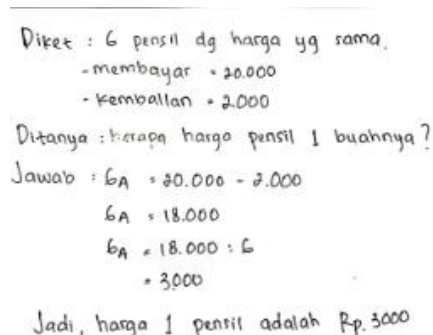 Diket : 6 pensil dg harga yg sama.
- membayar = 20.000
- kembalian = 2.000
Ditanya : berapa harga pensil 1 buahnya?
Jawab : 6A = 20.000 - 2.000
6A = 18.000
6A = 18.000 : 6
= 3000
Jadi, harga 1 pensil adalah Rp. 3000